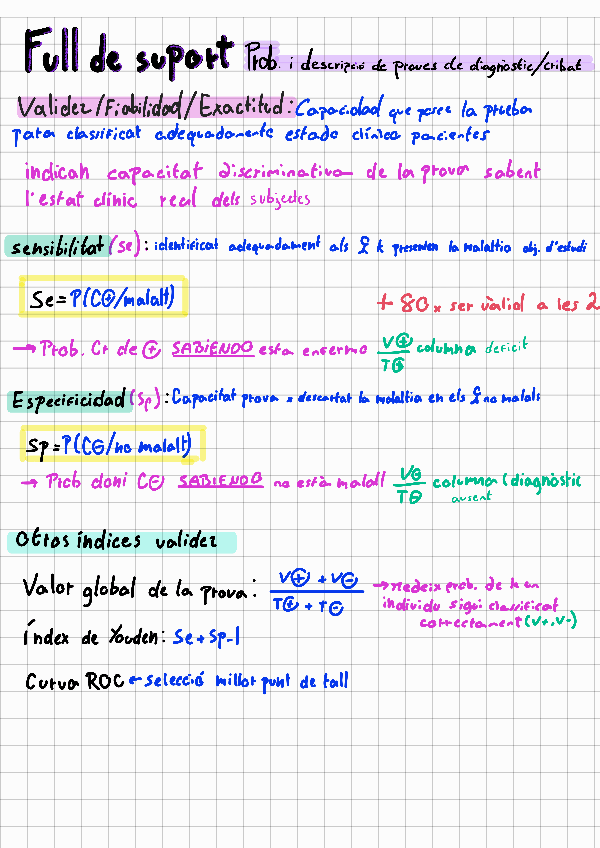 Full de suport Prob. i descripció de proves de diagnòstic/cribat
Validez/Fiabilidad/Exactitud: Capacidad que posee la prueba
para classificat adequadamente estado clínico pacientes
indican capacitat discriminativa de la prova sabent
l'estat clínic real dels subjectes
sensibilitat (Se): identificat adequadament als k presenten la malaltia obj. d'estudi
Se = P(C⊕/malalt)
+ 80 x ser vàlid a les 2
→ Prob. Cr de ⊕ SABIENDO esta enfermo V⊕/T⊕ columna deficit
Especificidad (Sp): Capacitat prova x descartat la malaltia en els no malals
Sp = P(C⊖/no malalt)
→ Prob doni C⊖ SABIENDO no està malalt V⊖/T⊖ columna (diagnòstic
ausent
Otros índices validez
Valor global de la prova: V⊕ + V⊖ / T⊕ + T⊖ → Medeix prob. de k un
individu sigui classificat
correctament (V+, V-)
Índex de Youden: Se + Sp - 1
Curva ROC ← selecció millor punt de tall